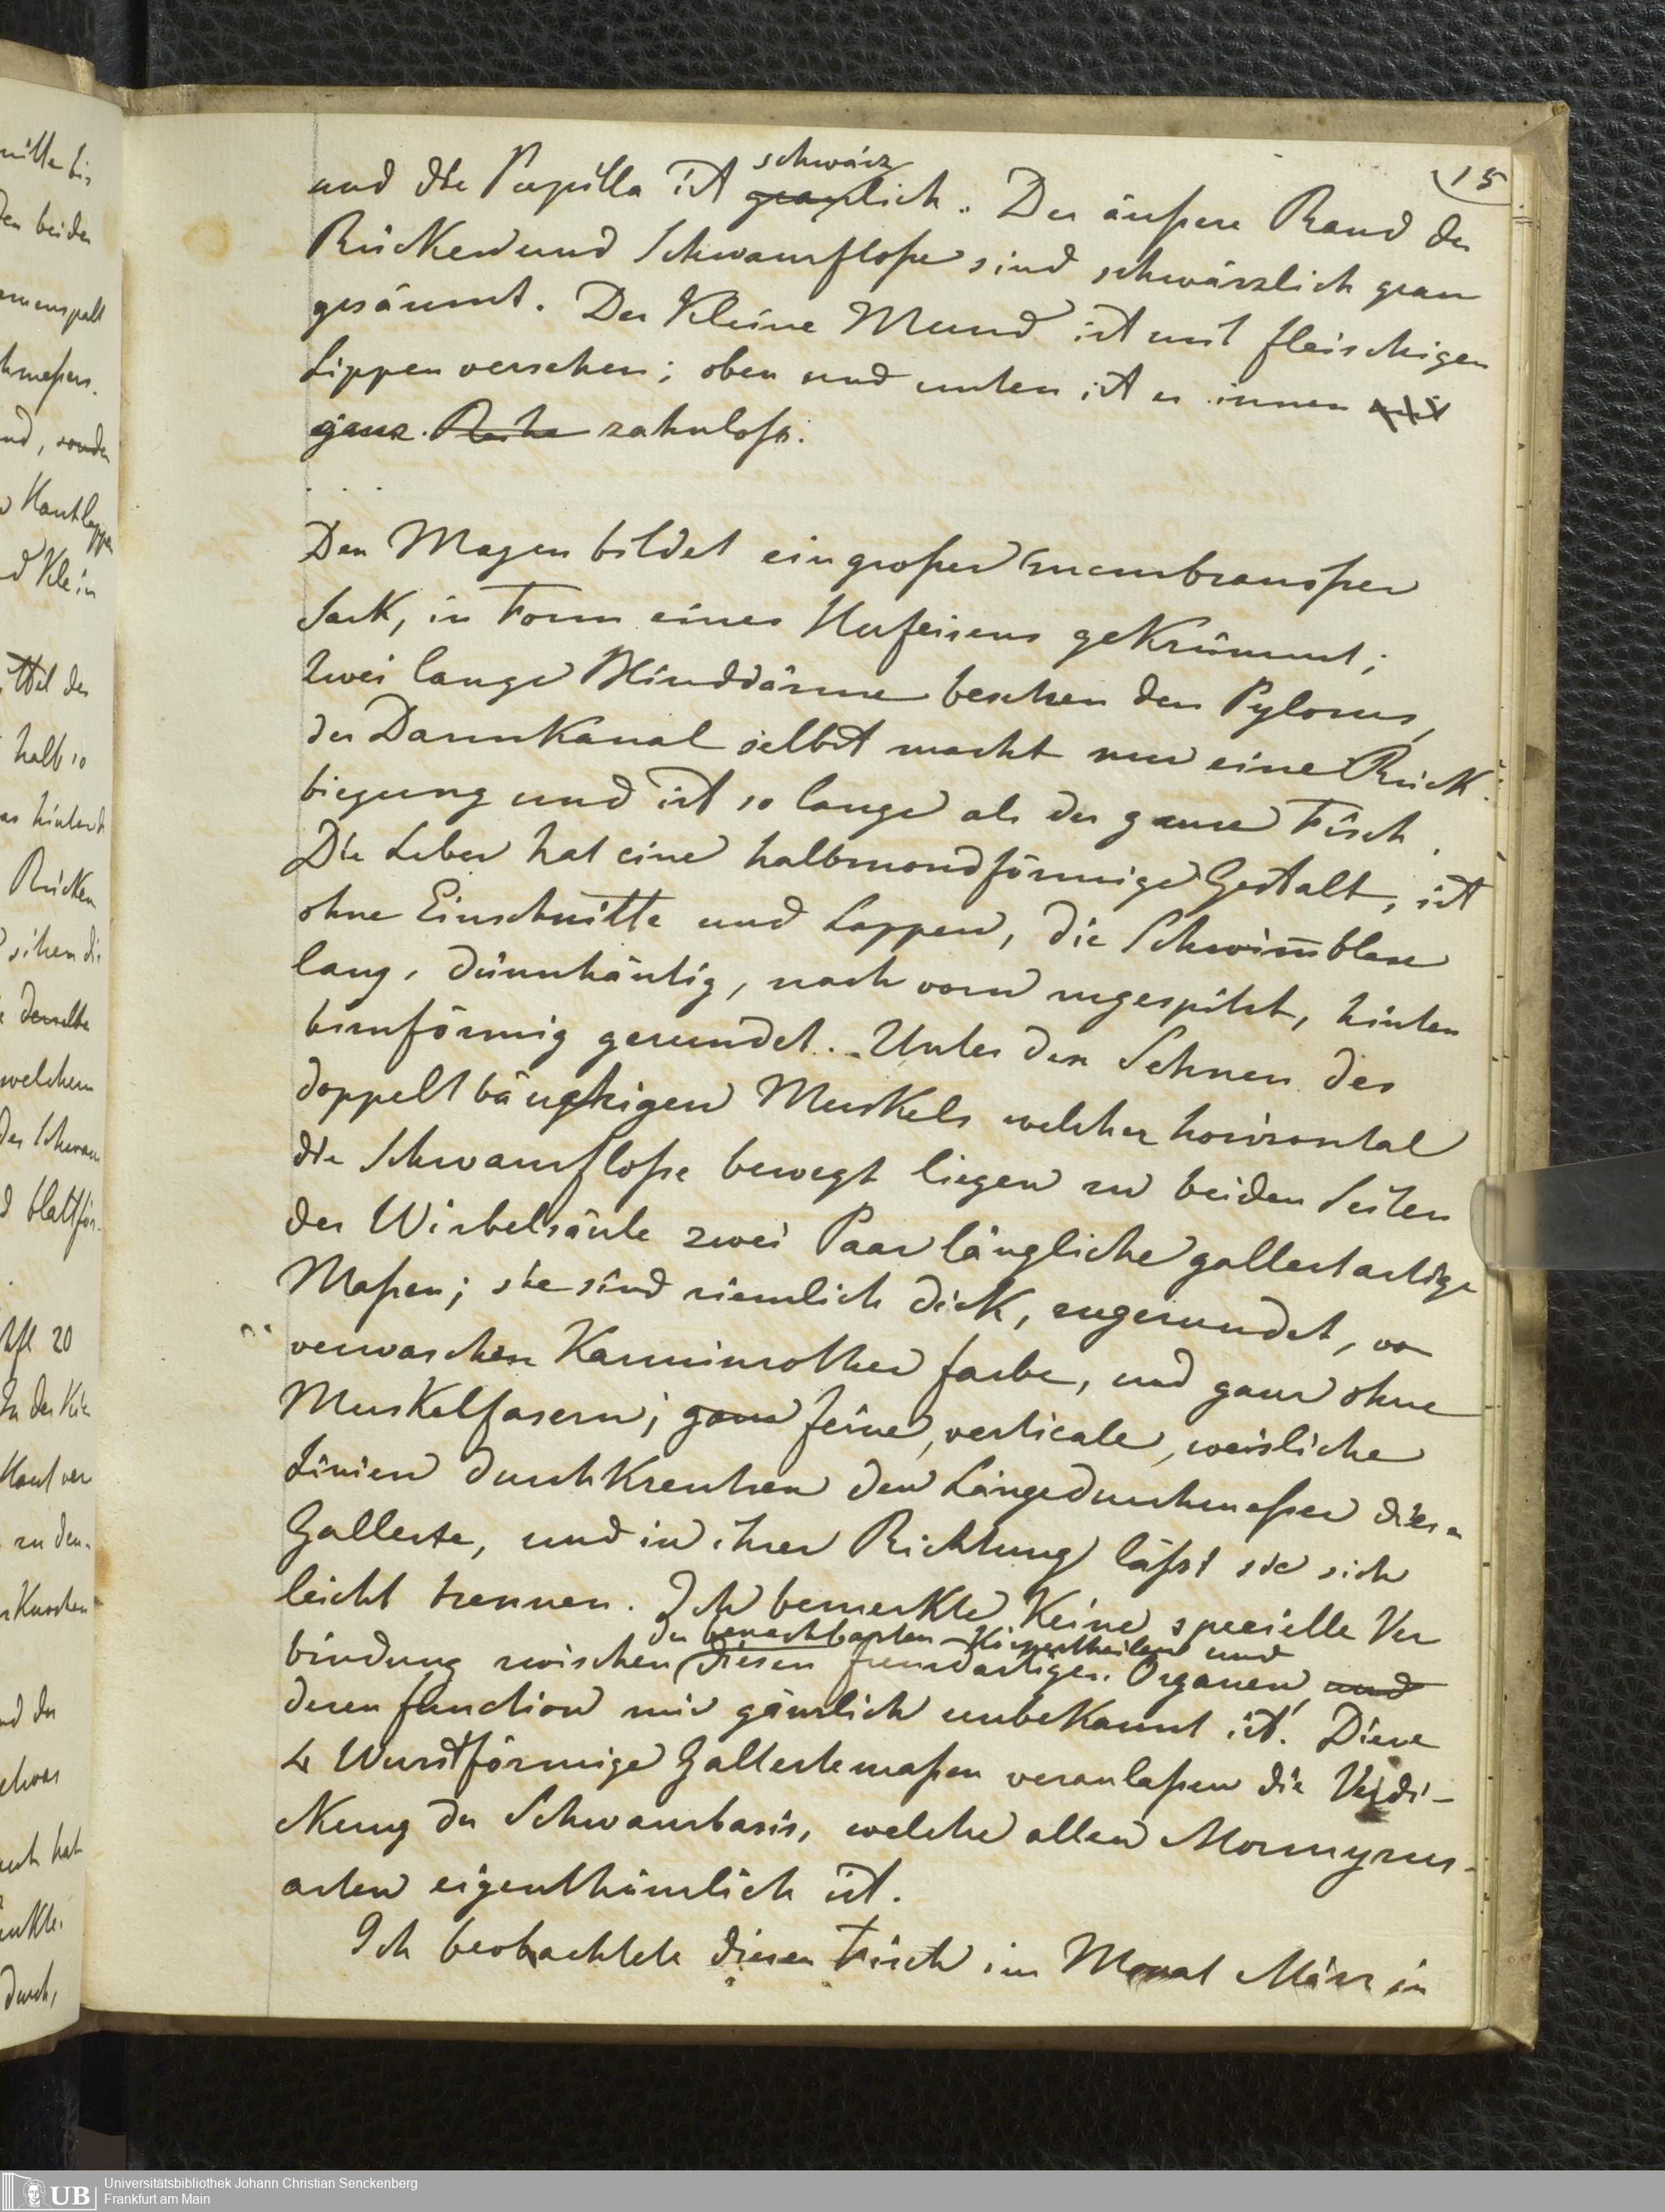 15
und die Pupilla ist schwärzlich. Der äußere Rand der
Rücken und Schwanzfloße sind schwärzlich grau
gesäumt. Der kleine Mund ist mit fleischigen
Lippen versehen; oben und unten ist er innen mit
ganz Reihe zahnloß.
Den Magen bildet ein großer membranoßer
Sack, in Form eines Hufeisens gekrümmt;
zwei lange Blinddärme besetzen den Pylorus,
der Darmkanal selbst macht nur eine Rück
biegung und ist so lange als der ganze Fisch.
Die Leber hat eine halbmondförmige Gestalt, ist
ohne Einschnitte und Lappen, die Schwim̅blase
lang, dünnhäutig, nach vorn zugespitzt, hinten
birnförmig gerundet. Unter den Sehnen des
doppelt bäuchigen Muskels welcher horizontal
die Schwanzfloße bewegt liegen zu beiden Seiten
der Wirbelsäule zwei Paar längliche gallertartige
Maßen; sie sind ziemlich dick, zugerundet, von
verwaschen karminrother farbe, und ganz ohne
Muskelfasern; ganz feine, verticale, weisliche
Linien durchkreutzen den Längedurchmeßer dieser
Gallerte, und in ihrer Richtung läßt sie sich
leicht trennen. Ich bemerkte keine specielle Ver
den benachbarten Körpertheilen und
bindung zwischen diesen fremdartigen Organen, und
deren function mir gänzlich unbekannt ist. Diese
4 Wurstförmige Gallertemaßen veranlaßen die Verdi-
ckung der Schwanzbasis, welche allen Mormyrus-
arten eigenthümlich ist.
Ich beobachtete diesen Fisch im Monat März in
nitte bis
den beiden
Hautlappen
d Klein
ittel der
halb so
Rücken
derselbe
welchem
der Schwanz
20
In der
Haut ver
zu den
Knochen
nd der
etwas
hat
durch,
UB
Universitätsbibliothek Johann Christian Senckenberg
Frankfurt am Main